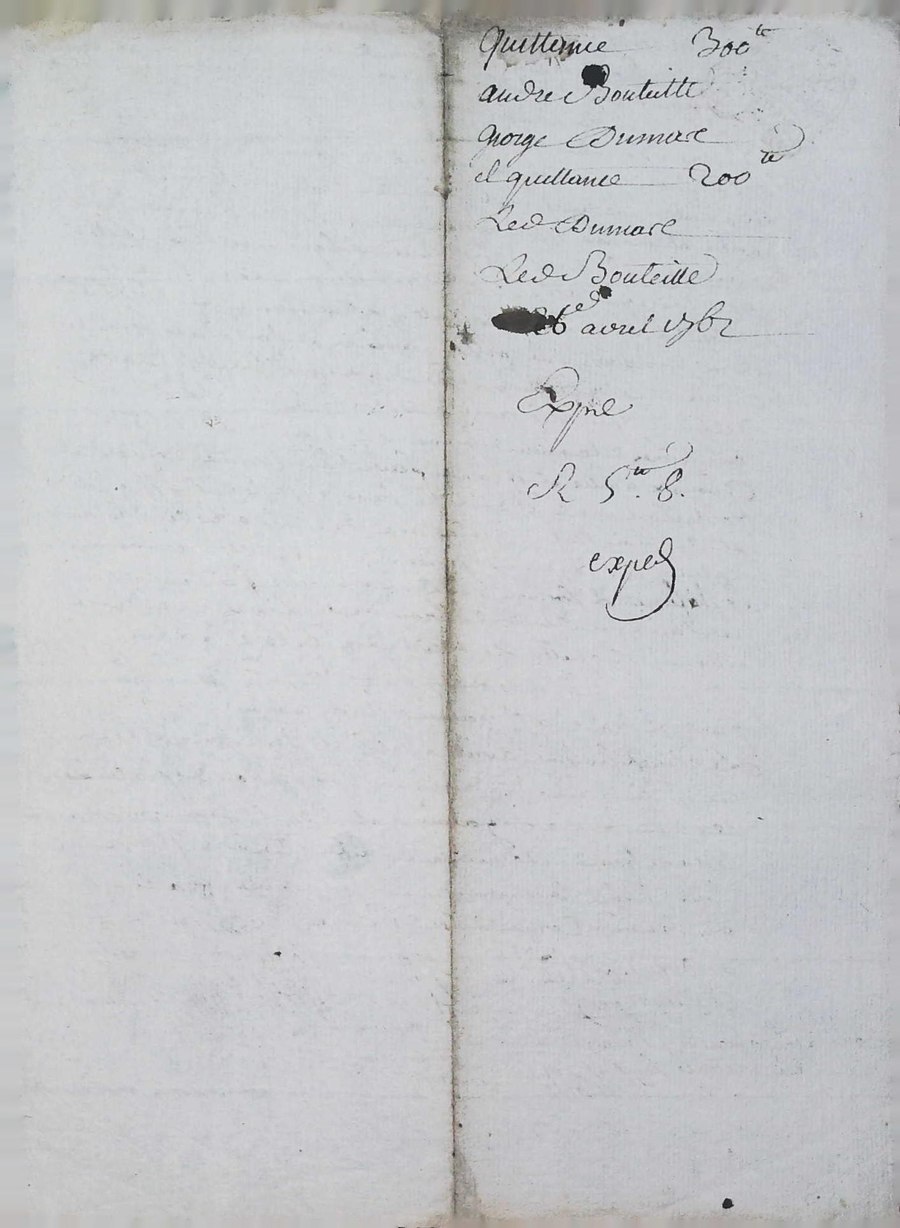 Quittance 300ᵗᵗ
andre Bouteille
george Dumare
et quittance 200ᵗᵗ
Led Dumare
Led Bouteille
26 avril 1762
Expie
R 5ᵗᵗ. 8.
exped